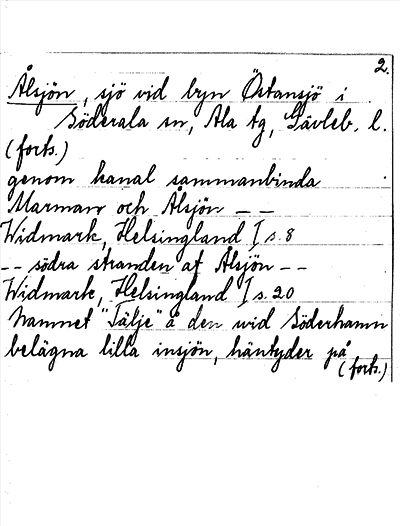 2.
Ålsjön, sjö vid byn Östansjö i
Söderala sn, Ala tg, Gävleb. l.
(forts.)
genom kanal sammanbinda
Marmarn och Ålsjön – –
Widmark, Helsingland I s. 8
– – södra stranden af Ålsjön – –
Widmark, Helsingland I s. 20
Namnet "Tälje" å den wid Söderhamn
belägna lilla insjön, häntyder på
(forts.)